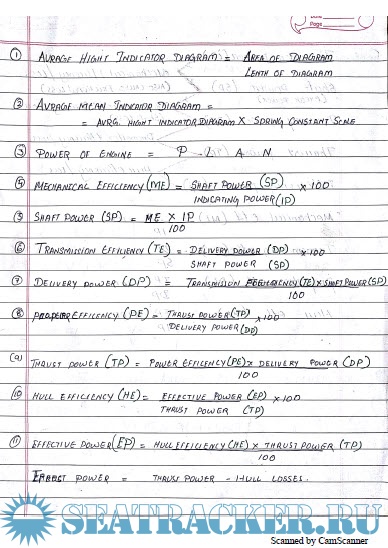 Date
Page
① AVRAGE HIGHT INDICATOR DIAGRAM = AREA OF DIAGRAM
LENTH OF DIAGRAM
② AVRAGE MEAN INDICATOR DIAGRAM =
= AVRG. HIGHT INDICATOR DIAGRAM X SPRING CONSTANT SCALE
③ POWER OF ENGINE = P L A N
④ MECHANICAL EFFICIENCY (ME) = SHAFT POWER (SP) X 100
INDICATING POWER (IP)
⑤ SHAFT POWER (SP) = ME X IP
100
⑥ TRANSMISSION EFFILIENCY (TE) = DELIVERY POWER (DP) X 100
SHAFT POWER (SP)
⑦ DELIVERY POWER (DP) = TRANSMISSION EFFICIENCY (TE) X SHAFT POWER (SP)
100
⑧ EFFICENCY (PE) = THRUST POWER (TP) X 100
DELIVERY POWER (DP)
(9) THRUST POWER (TP) = POWER EFFICENCY (PE) X DELIVERY POWER (DP)
100
⑩ HULL EFFICIENCY (HE) = EFFECTIVE POWER (EP) X 100
THRUST POWER (TP)
⑪ EFFECTIVE POWER (EP) = HULL EFFICIENCY (HE) X THRUST POWER (TP)
100
POWER = THRUST POWER - HULL LOSSES.
SEATRACKER.RU
Scanned by CamScanner